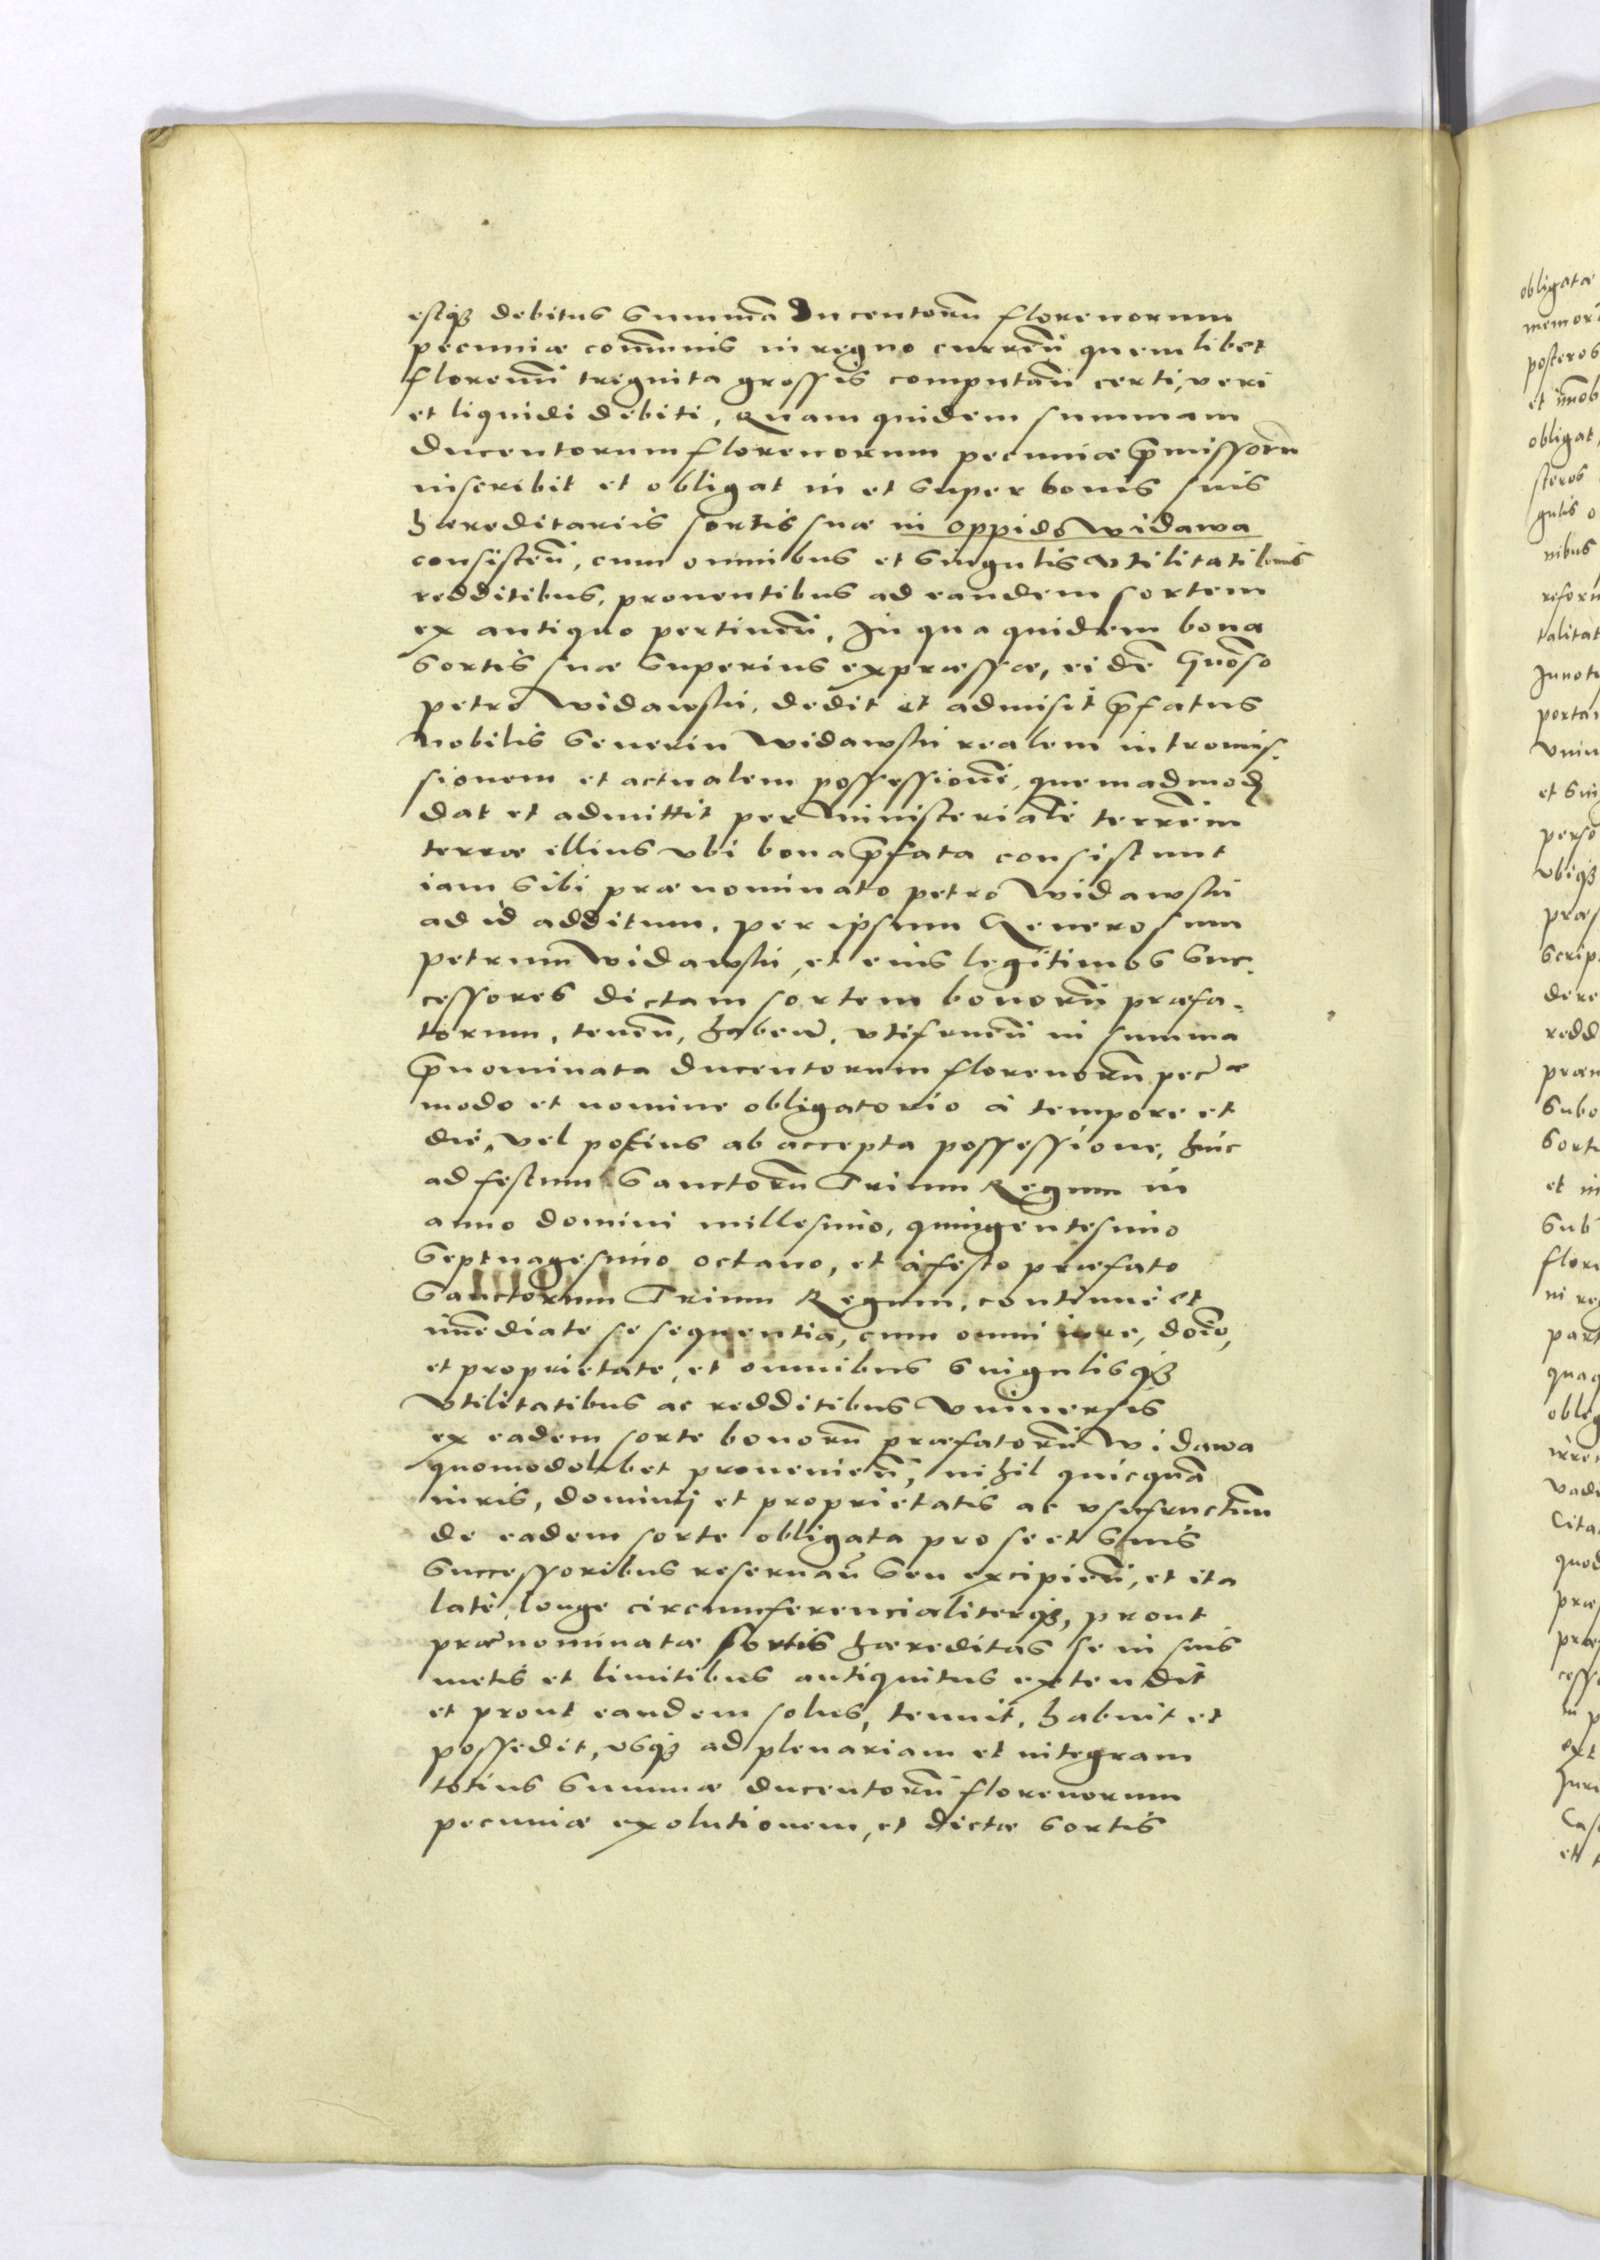 estqꝫ debitus Summa Ducentorũ florenorum
pecuniæ com̃unis in regno curreñ quemlibet
floreñũ treginta grossis computañ certi, veri
et liquidi debiti, Quam quidem summam
Ducentorum florenorum pecuniæ p̃missorũ
inscribit et obligat in et super bonis suis
hæreditariis sortis suæ in oppido Widawa
consisteñ, cum omnibus et singulis vtilitatibus
redditibus, prouentibus ad eandem sortem
ex antiquo pertineñ, In qua quidem bona
sortis suæ superius expræssæ, eidẽ Gñoso
petro Widawski, dedit et admisit p̃fatus
Nobilis Seuerin Widawski realem intromis-
sionem et actualem possessionẽ, quemadmodũ
dat et admittit per Ministerialẽ terrẽm
terræ illius vbi bona p̃fata consistunt
iam sibi prænominato petro Widawski
ad id additum, per ipsum Generosum
petrum Widawski, et eius legitimos suc-
cessores dictam sortem bonorũ præfa-
torum, teneñ, habeñ, vtifrueñ in summa
p̃nominata Ducentorum florenorũ pecæ
modo et nomine obligatorio à tempore et
die, vel potius ab accepta possessione, hinc
ad festum Sanctorũ Trium Regum in
anno domini millesimo, quingentesimo
Septuagesimo octauo, et à festo præfato
Sanctorum Trium Regum, continuè et
im̃ediate se sequentia, cum omni iure, doĩo,
et proprietate, et omnibus singulisqꝫ
Vtilitatibus ac redditibus Vniuersis
ex eadem sorte bonorũ præfatorũ Widawa
quomodolibet prouenieñ, nihil quicquã
iuris, dominij et proprietatis ac vsufructum
de eadem sorte obligata pro se et suis
Successoribus reseruañ seu excipieñ, et ita
latè, longe circumferencialiterqꝫ, prout
prænominatæ sortis hæreditas se in suis
metis et limitibus antiquitus extendit
et prout eandem solus, tenuit, habuit et
possedit, vsqꝫ ad plenariam et integram
totius summæ ducentorũ florenorum
pecuniæ exolutionem, et dictæ sortis